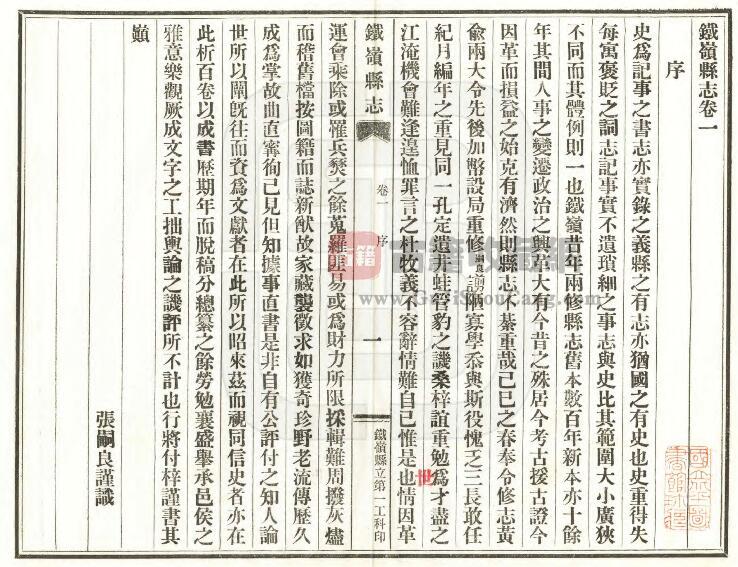 鐵嶺縣志卷一
序
史爲記事之書志亦實錄之義縣之有志亦猶國之有史也史重得失
每寓褒貶之詞志記事實不遺瑣細之事志與史比其範圍大小廣狹
不同而其體例則一也鐵嶺昔年兩修縣志舊本數百年新本亦十餘
年其間人事之變遷政治之興革大有今昔之殊居今考古援古證今
因革而損益之始克有濟然則縣志不綦重哉己巳之春奉令修志黃
兪兩大令先後加幣設局重修嗣良謭陋寡學忝與斯役愧乏三長敢任
紀月編年之重見同一孔定遺井蛙管豹之譏桑梓誼重勉爲才盡之
江淹機會難逢遑恤罪言之杜牧義不容辭情難自已惟是也情因革
世
鐵嶺縣志
卷一 序
一
鐵嶺縣立第一工科印
運會乘除或罹兵燹之餘蒐羅匪易或爲財力所限採輯難周撥灰燼
而稽舊檔按圖籍而誌新猷故家藏襲徵求如獲奇珍野老流傳歷久
成爲掌故曲直寗徇己見但知據事直書是非自有公評付之知人論
世所以闡旣往而資爲文獻者在此所以昭來茲而視同信史者亦在
此析百卷以成書歷期年而脫稿分總纂之餘勞勉襄盛舉承邑侯之
雅意樂觀厥成文字之工拙輿論之譏評所不計也行將付梓謹書其
顚
張嗣良謹識
古籍收藏網
www.GujiShouCang.com